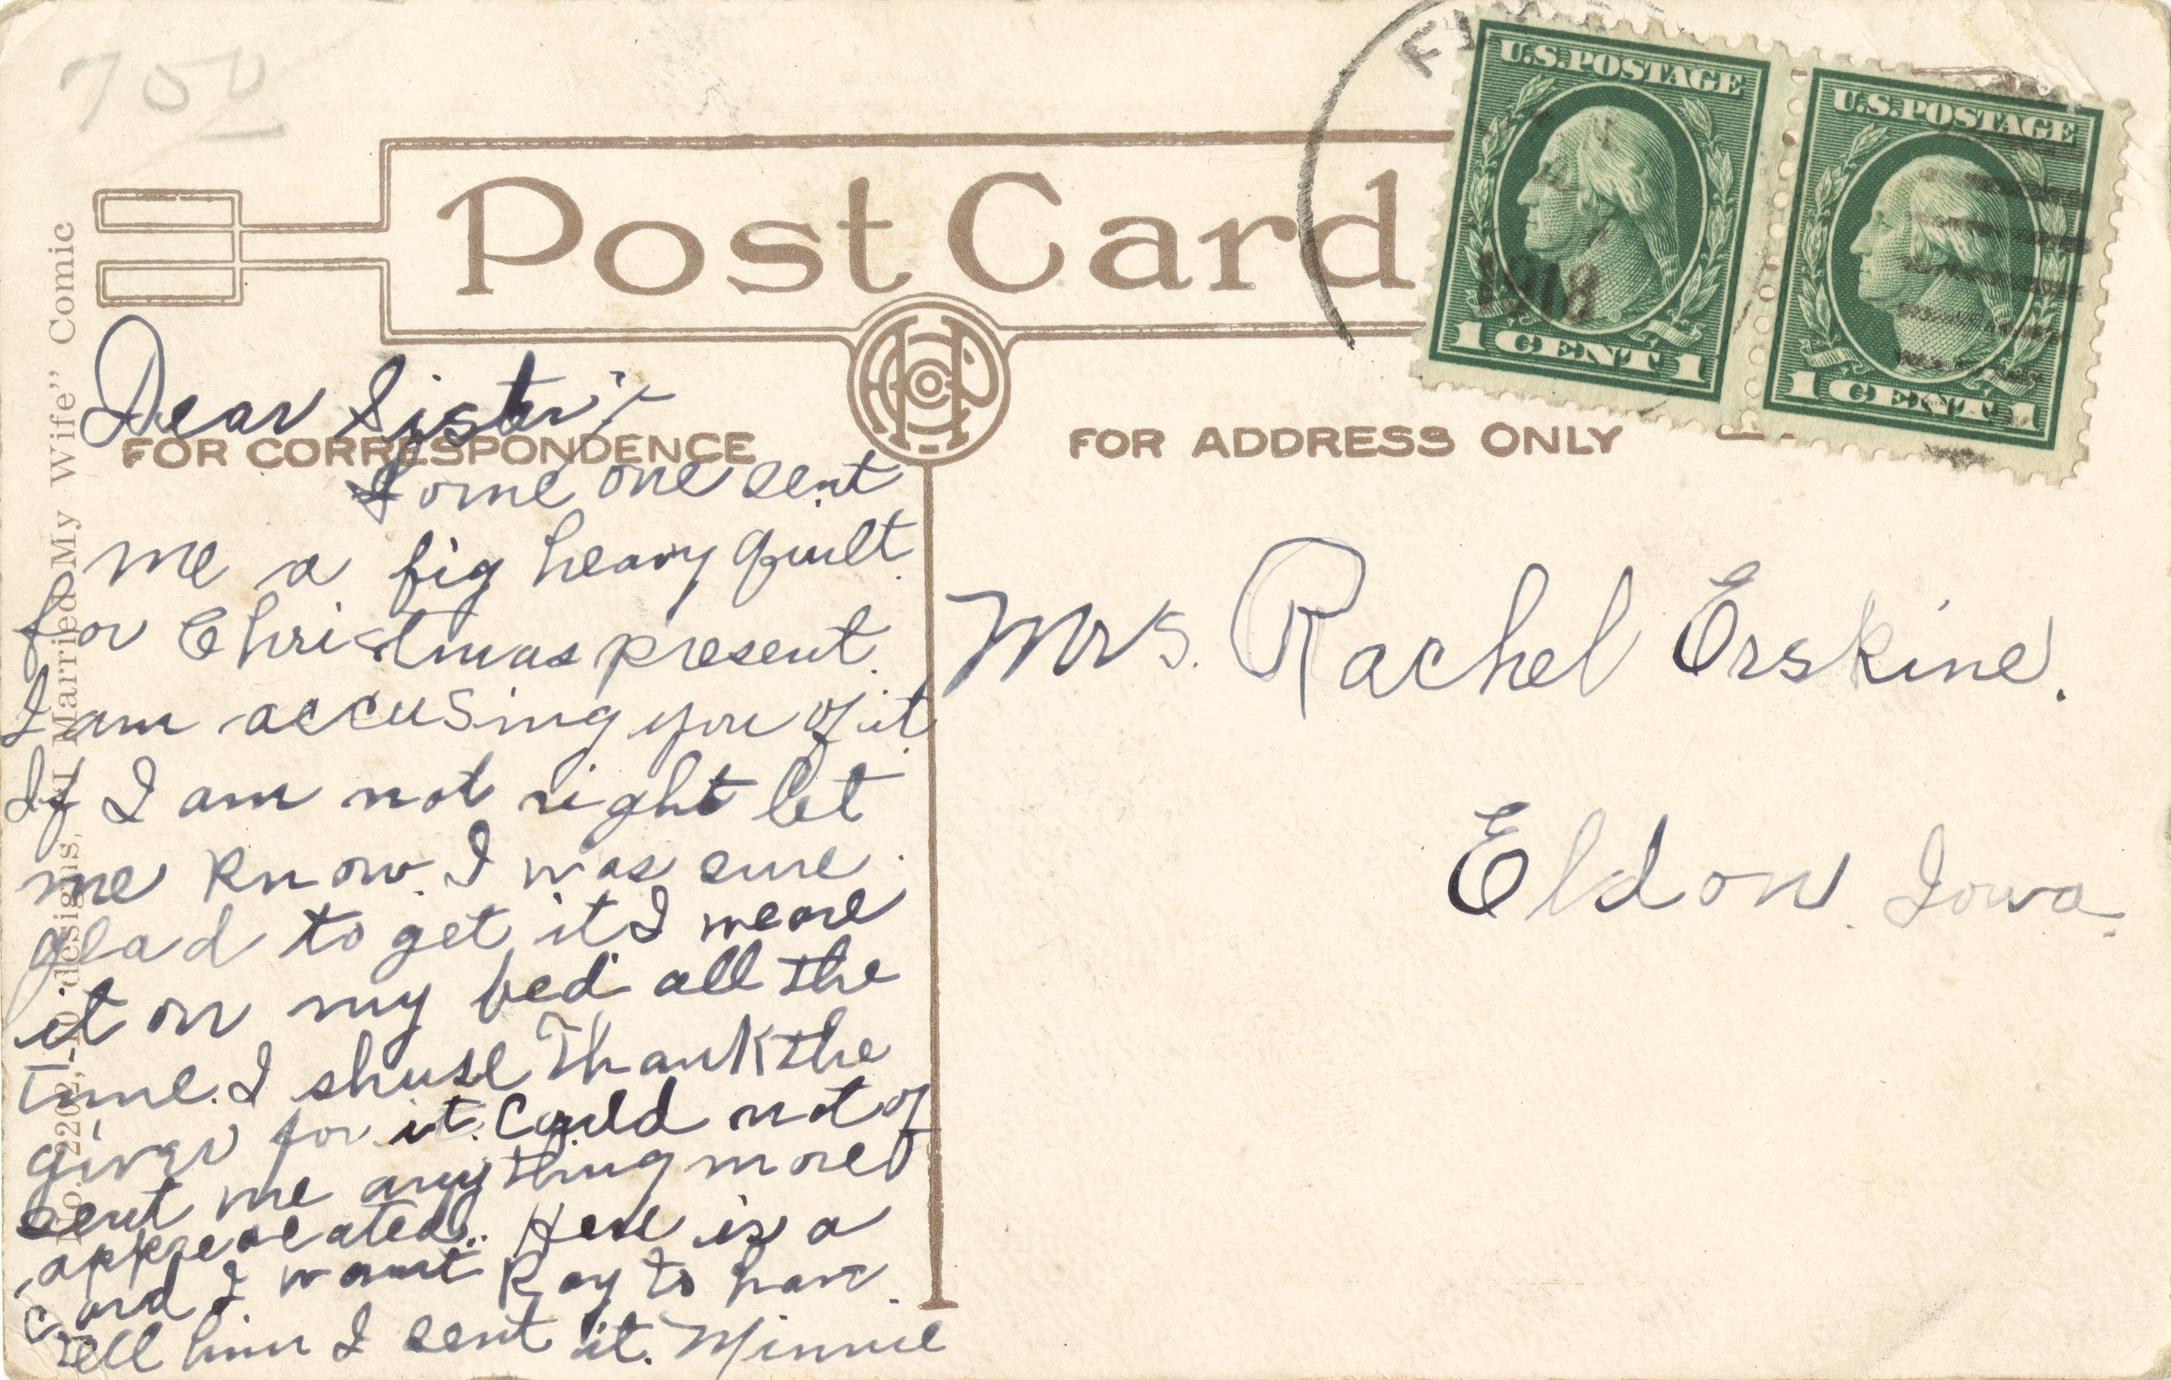 750
Post Card
U.S. POSTAGE
1918
1 CENT 1
U.S. POSTAGE
1 CENT 1
FOR CORRESPONDENCE
FOR ADDRESS ONLY
Dear Sister:-
Some one sent
me a big heavy quilt
for Christmas present.
I am accusing you of it.
If I am not right let
me know. I was sure
glad to get it I weare
it on my bed all the
time. I shuse Thank the
giver for it. Could not of
sent me anything more
appreacated.. Here is a
card I want Ray to have.
Tell him I sent it. Minnie
Mrs. Rachel Erskine.
Eldon. Iowa.
No. 2202,-10 designs, "I Married My Wife" Comic